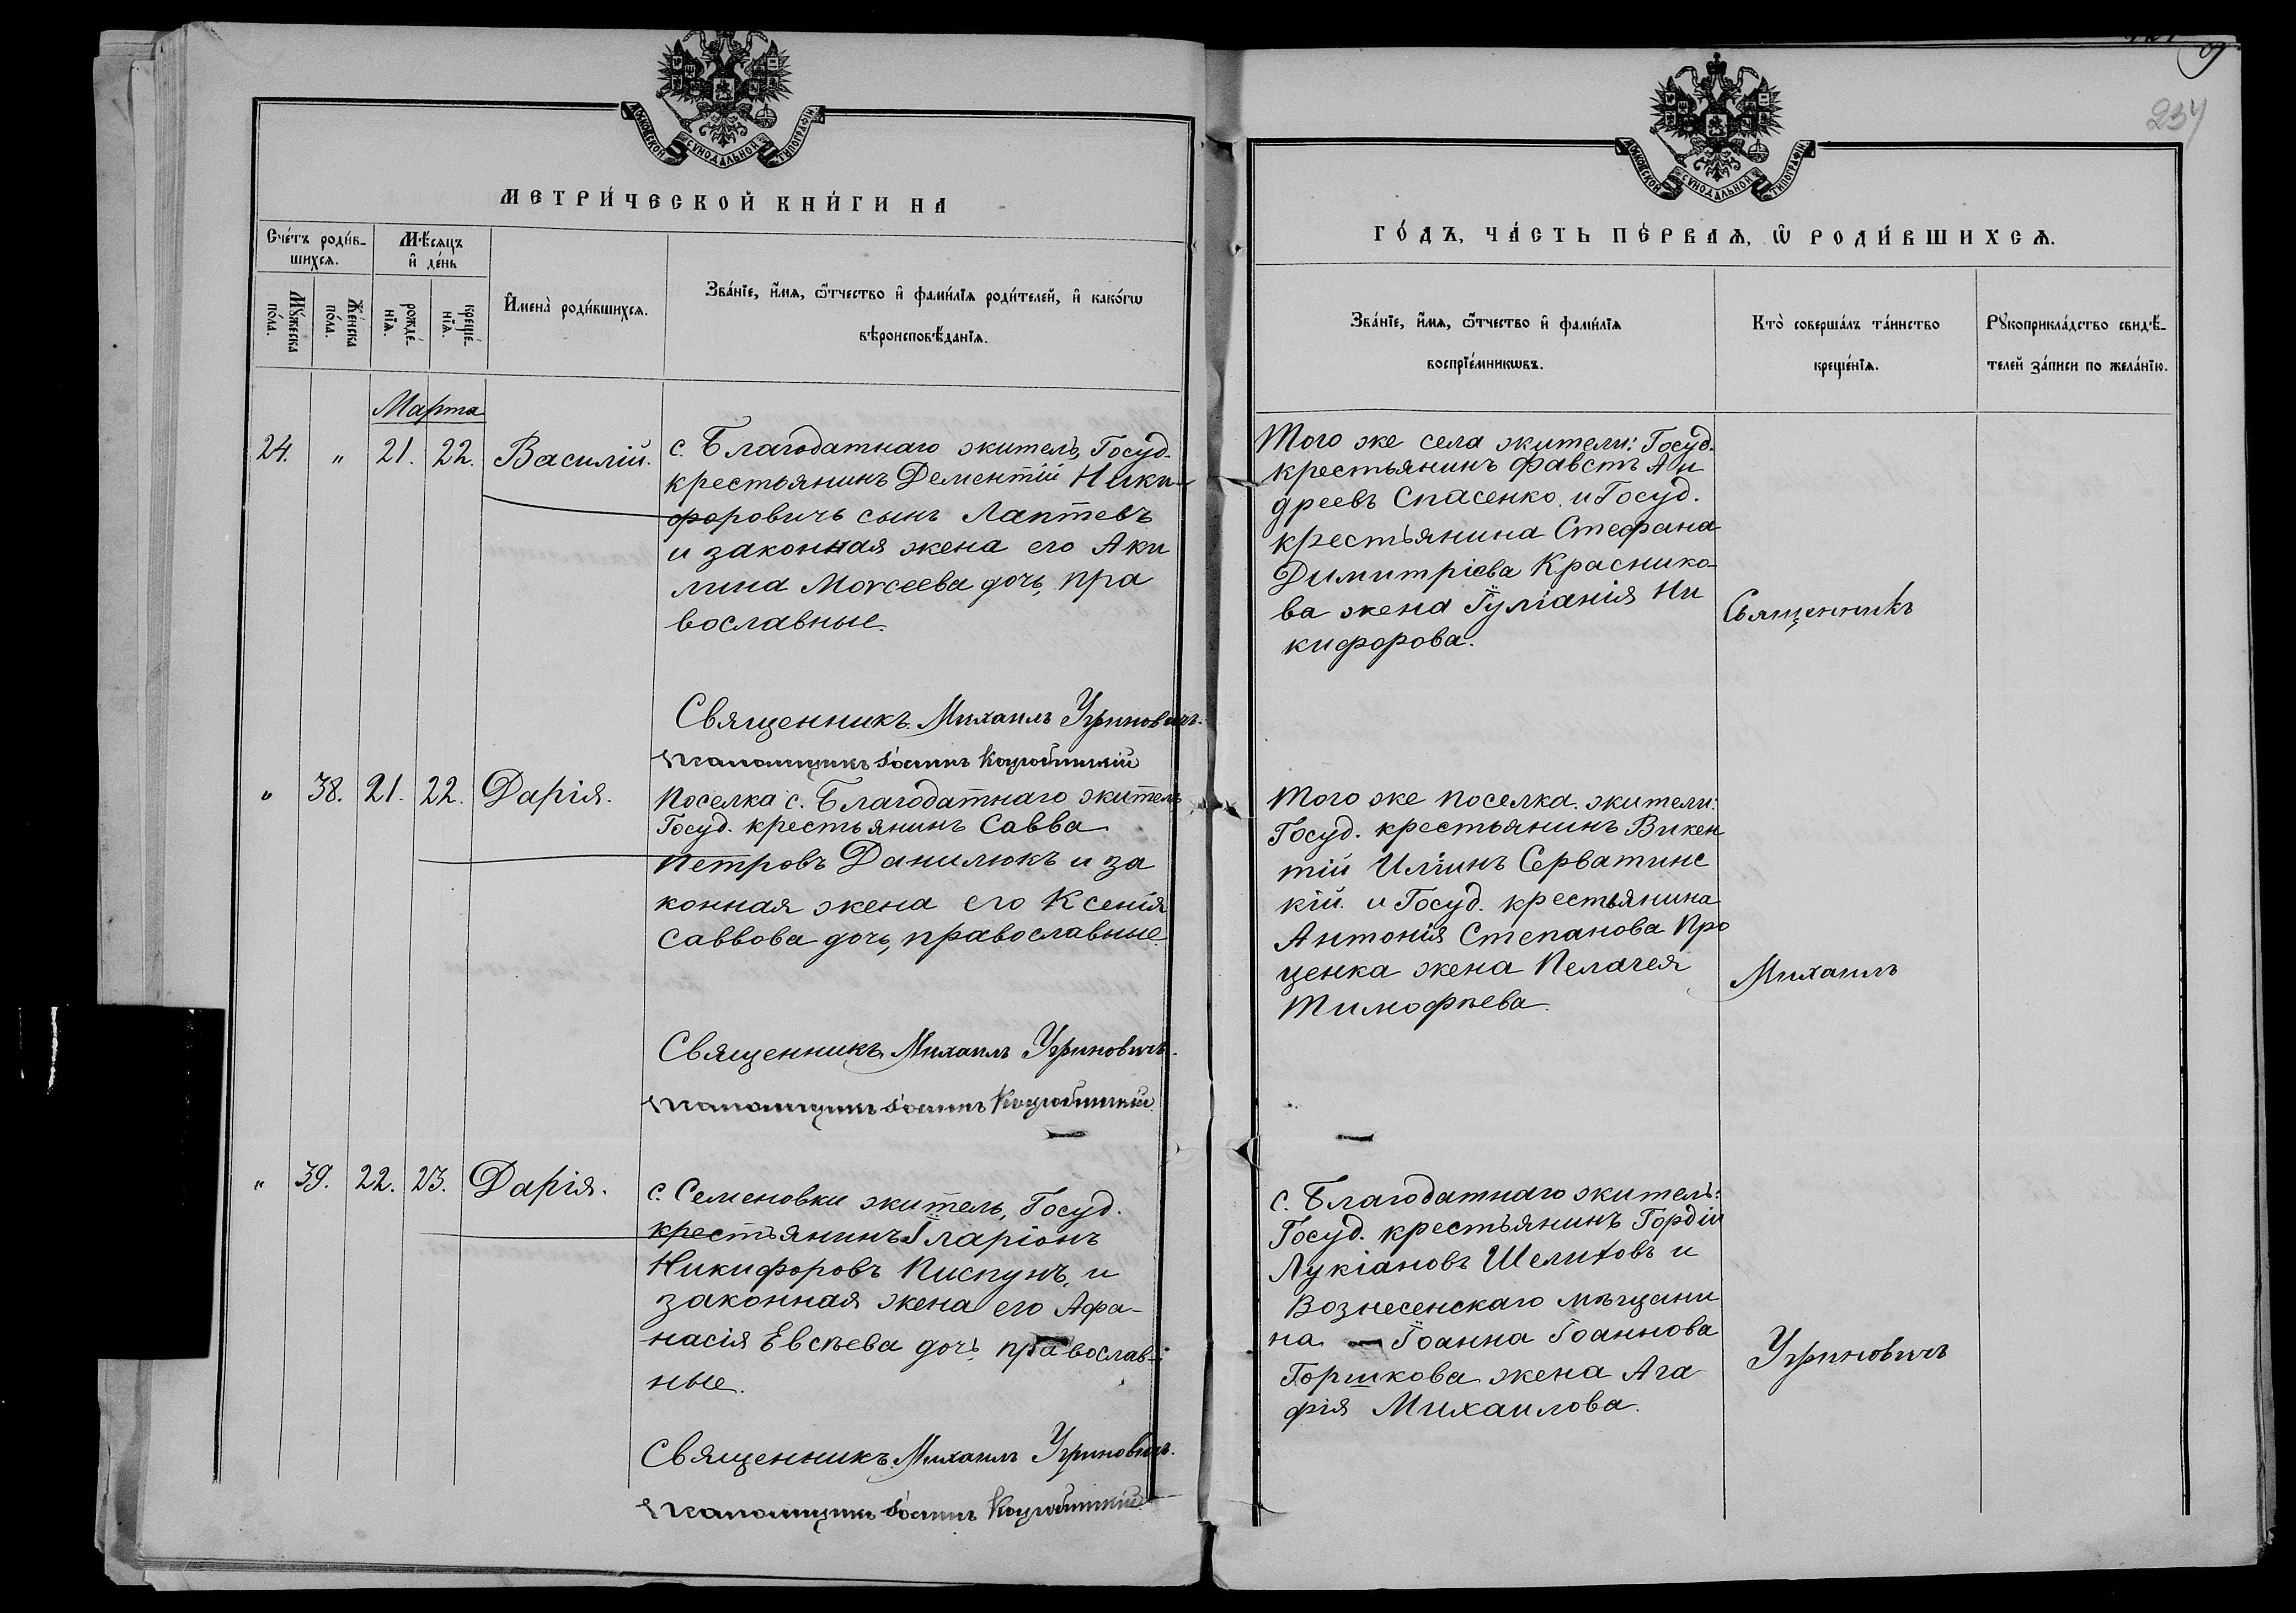 237
МОСКОВСКОЙ СѴНОДАЛЬНОЙ ТИПОГРАФІИ
МЕТРИ́ЧЕСКОЙ КНИ́ГИ НА
Сче́тъ роди́в-
шихсѧ.
Мѣ́сѧцъ
и҆ де́нь
И҆мена̀ роди́вшихсѧ.
Зва́нїе, и҆́мѧ, ѻ҆́тчество и҆ фами́лїѧ роди́телей, и҆ како́гѡ
вѣроисповѣ́данїѧ.
Мꙋ́жеска
по́ла.
Же́нска
по́ла.
рожде́-
нїѧ.
креще́-
нїѧ.
Марта
24. " 21. 22. Василій.
с. Благодатнаго житель, Госуд.
крестьянинъ Дементій Ники-
форовичъ сынъ Лаптевъ
и законная жена его Аки
лина Моисеева дочь, пра
вославные.
Священникъ Михаилъ Угриновичъ.
Псаломщикъ Іоаннъ
" 38. 21. 22. Дарія.
Поселка с. Благодатнаго житель
Госуд. крестьянинъ Савва
Петровъ Данилюкъ и за
конная жена его Ксенія
Саввова дочь, православные.
Священникъ Михаилъ Угриновичъ.
Псаломщикъ Іоаннъ
" 39. 22. 23. Дарія.
с. Семеновки житель, Госуд.
крестьянинъ Іларіонъ
Никифоровъ Пискунъ, и
законная жена его Афа-
насія Евсѣева дочь, православ-
ные.
Священникъ Михаилъ Угриновичъ.
Псаломщикъ Іоаннъ
МОСКОВСКОЙ СѴНОДАЛЬНОЙ ТИПОГРАФІИ
ГО́ДЪ, ЧА́СТЬ ПЕ́РВАѦ, Ѡ҆ РОДИ́ВШИХСѦ.
Зва́нїе, и҆́мѧ, ѻ҆́тчество и҆ фами́лїѧ
воспрїе́мникѡвъ.
Кто̀ соверша́лъ та́инство
креще́нїѧ.
Рꙋкоприкла́дство свидѣ́-
телей за́писи по жела́нїю.
Того же села жители: Госуд.
крестьянинъ Фавстъ Ан
дреевъ Спасенко и Госуд.
крестьянина Стефана
Димитріева Краснико-
ва жена Іуліанія Ни
кифорова.
Священникъ
Того же поселка жители:
Госуд. крестьянинъ Викен
тій Иліинъ Серватинс
кій и Госуд. крестьянина
Антонія Степанова Про
ценка жена Пелагея
Тимофѣева.
Михаилъ
с. Благодатнаго житель:
Госуд. крестьянинъ Гордій
Лукіановъ Шелиховъ и
Вознесенскаго мѣщани
на Іоанна Іоаннова
Горшкова жена Ага
фія Михаилова.
Угриновичъ